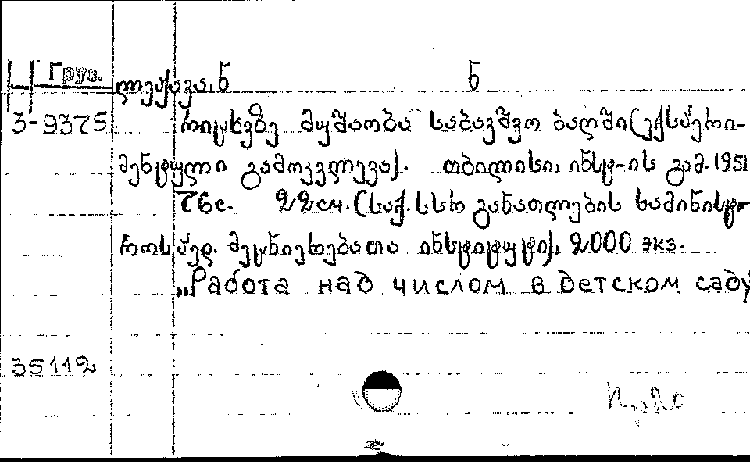 Груз.
ლეჟავა, ნ ნ
3-9375 რიცხვზე მუშაობა საბავშვო ბაღში (ექსპერი-
მენტული გამოკვლევა). თბილისი, ინსტ-ის გამ. 1951
76с. 22см. (საქ. სსრ განათლების სამინისტ-
როს პედ. მეცნიერებათა ინსტიტუტი), 2000 экз.
„Работа над числом в детском саду
35112